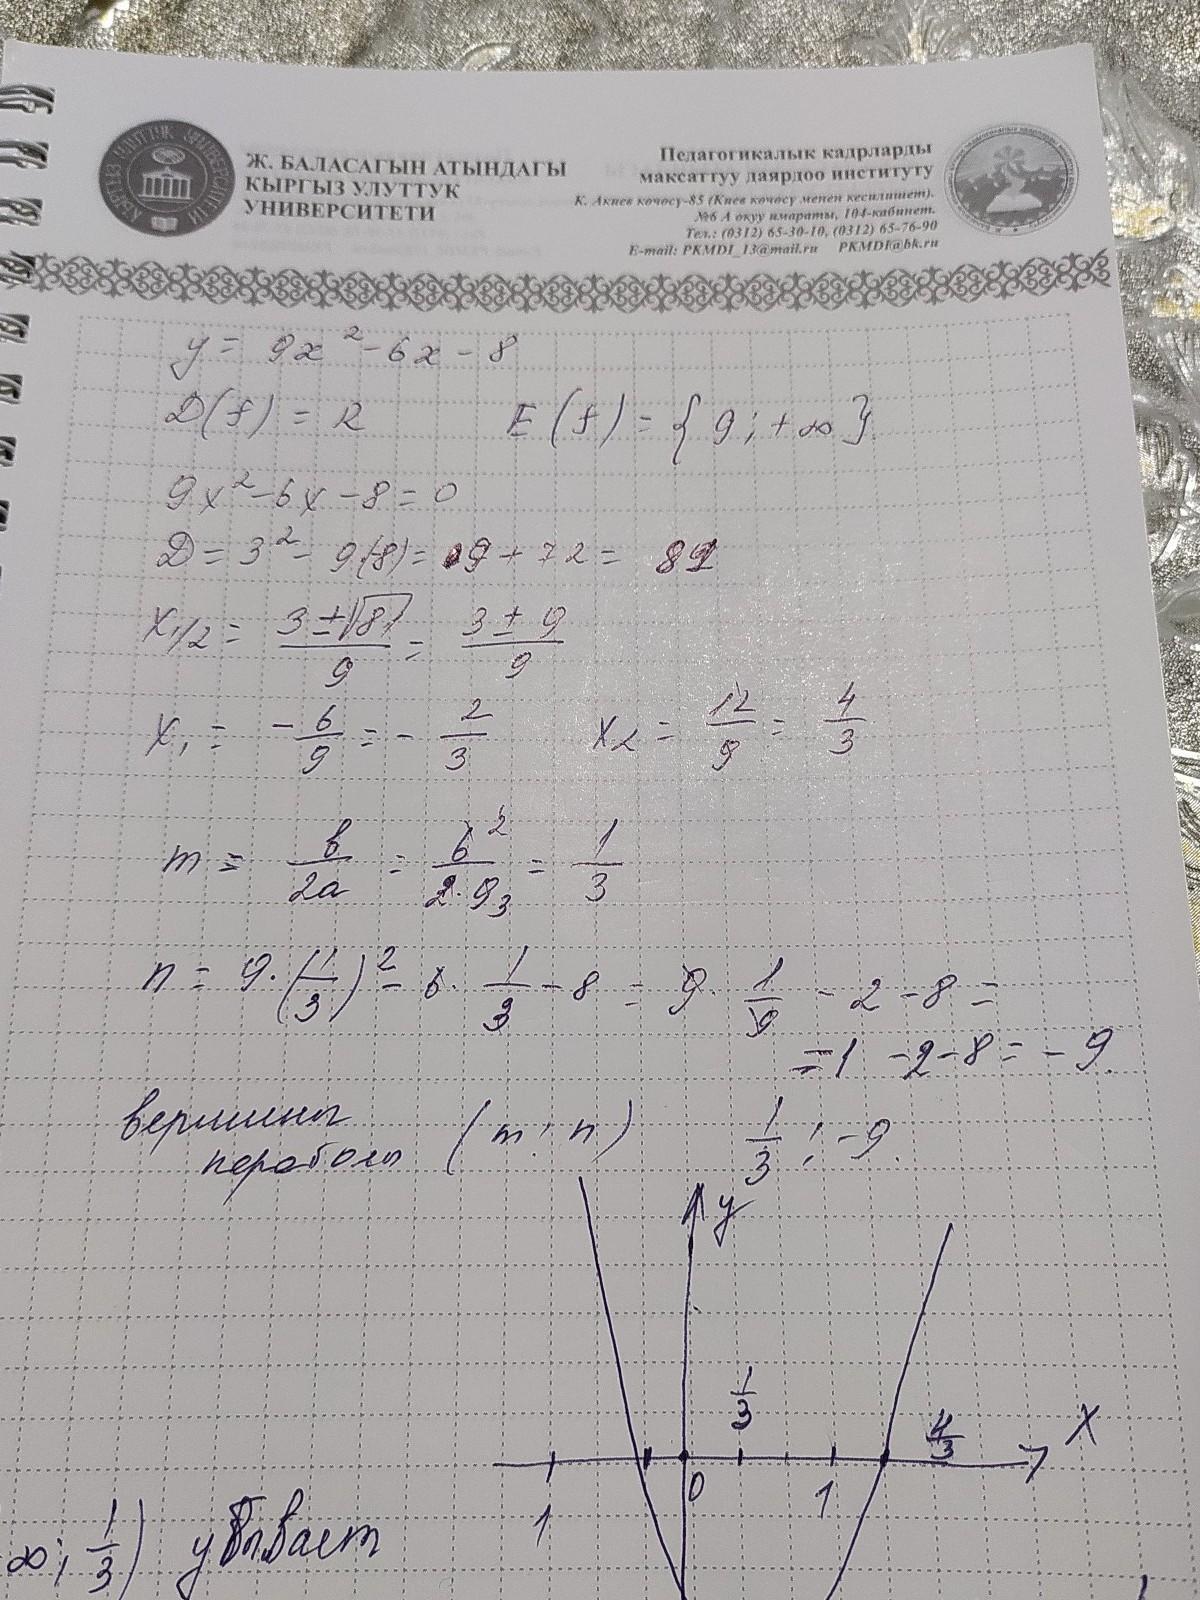 КЫРГЫЗ УЛУТТУК УНИВЕРСИТЕТИ
Ж. БАЛАСАГЫН АТЫНДАГЫ
КЫРГЫЗ УЛУТТУК
УНИВЕРСИТЕТИ
Педагогикалык кадрларды
максаттуу даярдоо институту
К. Акиев көчөсү-85 (Киев көчөсү менен кесилишет).
№6 А окуу имараты, 104-кабинет.
Тел.: (0312) 65-30-10, (0312) 65-76-90
E-mail: PKMDI_13@mail.ru PKMDI@bk.ru
y = 9x² - 6x - 8
D(f) = R E(f) = {9; +∞}
9x² - 6x - 8 = 0
D = 3² - 9(-8) = 9 + 72 = 81
x₁/₂ = (3 ± √81)/9 = (3 ± 9)/9
x₁ = -6/9 = -2/3 x₂ = 12/9 = 4/3
m = b/2a = 6/2·9 = 1/3
n = 9·(1/3)² - 6·1/3 - 8 = 9·1/9 - 2 - 8 =
= 1 - 2 - 8 = -9.
вершины
параболы (m; n) 1/3; -9.
y
1/3
4/3
x
1 0 1
∞; 1/3) убывает